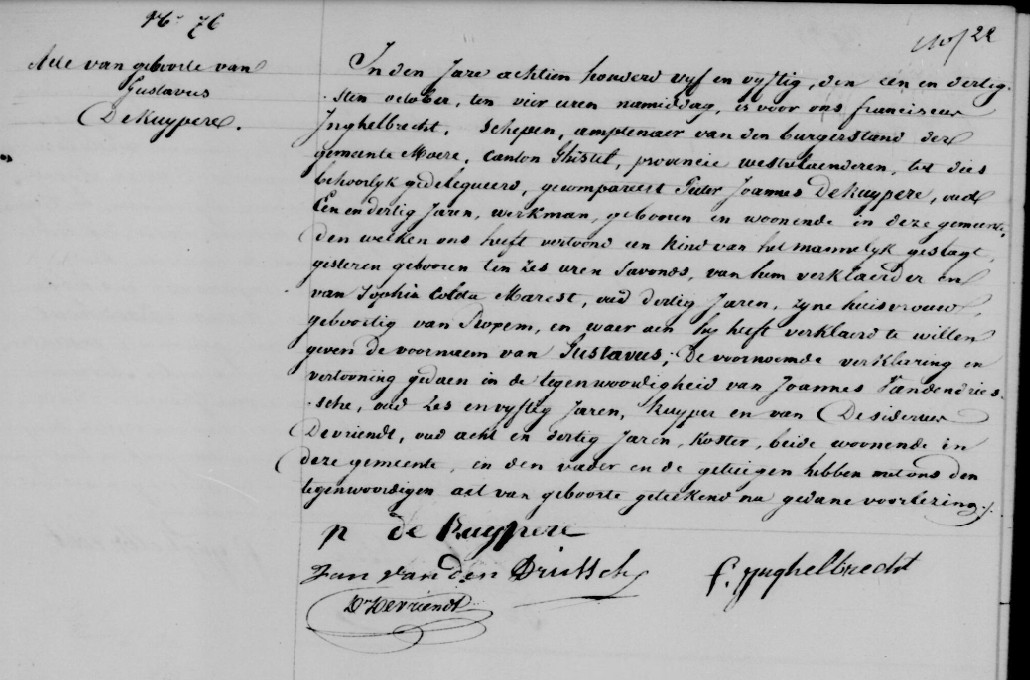 No 76
22
Acte van geboorte van
Gustavus
DeKuypere.
In den Jare achtien honderd vyf en vyftig, den een en dertig-
sten october, ten vier uren namiddag, is voor ons franciscus
Inghelbrecht, Schepen, amptenaer van den burgerstand der
gemeente Moere, Canton Ghistel, provincie westvlaenderen, tot dies
behoorlyk gedelegueerd, gecompareert Pieter Joannes DeKuypere, oud
Een en dertig Jaren, werkman, gebooren en woonende in deze gemeente,
den welken ons heeft vertoond een Kind van het mannelyk geslagt,
gisteren gebooren ten zes uren Savonds, van hem verklaerder en
van Sophia Colda Marest, oud dertig Jaren, zyne huisvrouw,
geboortig van Ropem, en waer aen hy heeft verklaerd te willen
geven de voornaem van Gustavus; De voornoemde verklaring en
vertooning gedaen in de tegenwoordigheid van Joannes Vandendries-
sche, oud Zes en vyftig Jaren, Kuyper en van Desiderius
Devriendt, oud acht en dertig Jaren, Koster, beide woonende in
deze gemeente, en den vader en de getuigen hebben met ons den
tegenwoordigen act van geboorte geteekend na gedane voorlezing./.
p de Kuypere
Jan van den Driessche f. ynghelbrecht
Dr Devriendt